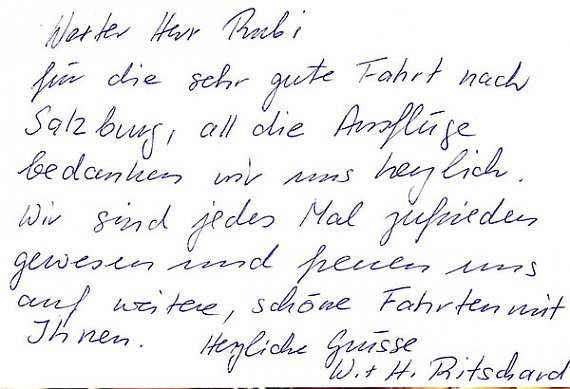 Werter Herr Rubi
für die sehr gute Fahrt nach
Salzburg, all die Ausflüge
bedanken wir uns herzlich.
Wir sind jedes Mal zufrieden
gewesen und freuen uns
auf weitere, schöne Fahrten mit
Ihnen.
Herzliche Grüsse
W. + H. Ritschard